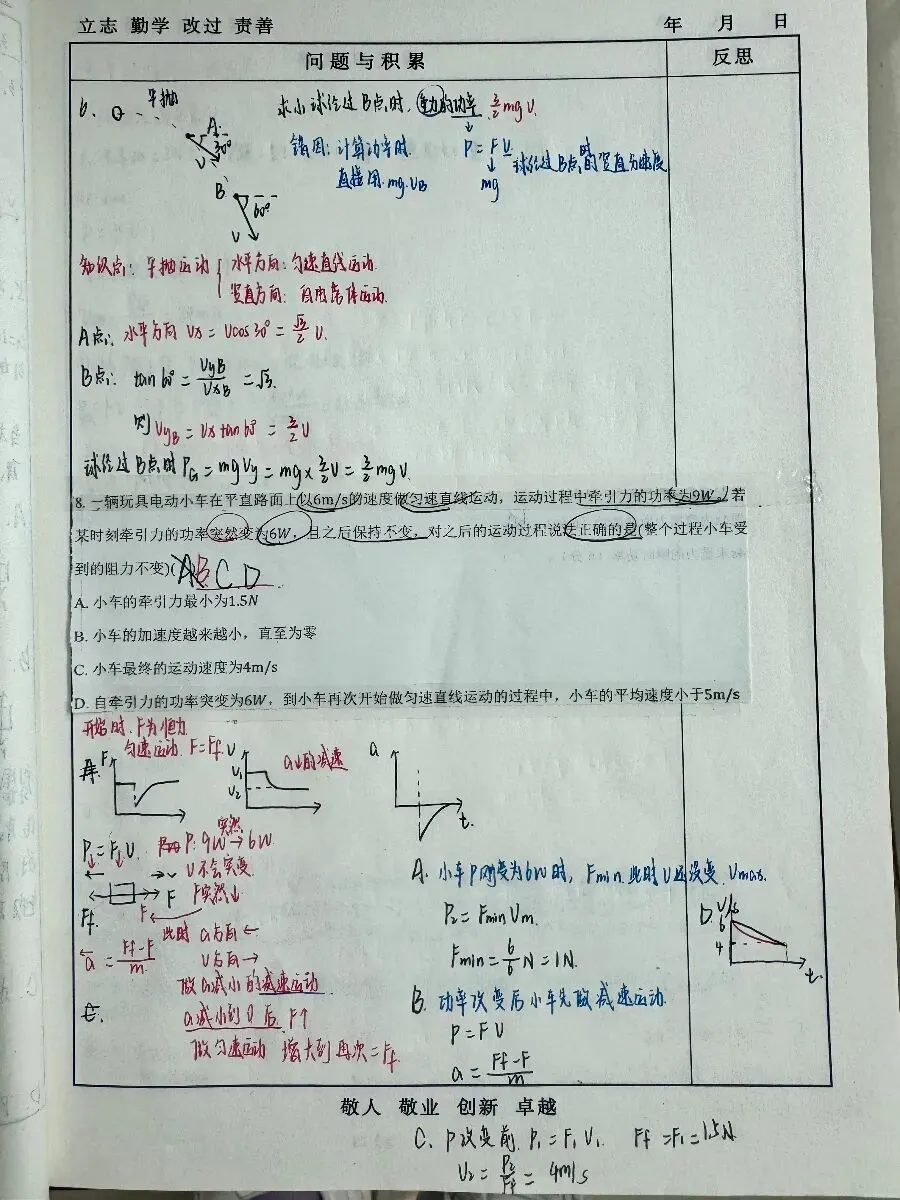 立志 勤学 改过 责善
年 月 日
问题与积累
反思
6. 平抛
求小球经过B点时,重力的功率 3/2 mgv.
A
30°
V
错因:计算功率时
直接用 mg·VB
P = F V
mg
球经过B点时的竖直分速度
B
60°
V
知识点:平抛运动
水平方向:匀速直线运动.
竖直方向:自由落体运动.
A点:水平方向 Vx = Vcos30° = √3/2 V.
B点:tan60° = VyB/VxB = √3.
则 VyB = Vx tan60° = 3/2 V
球经过B点时 PG = mgVy = mg × 3/2 V = 3/2 mgV.
8. 一辆玩具电动小车在平直路面上以6m/s的速度做匀速直线运动,运动过程中牵引力的功率为9W。若
某时刻牵引力的功率突然变为6W,且之后保持不变,对之后的运动过程说法正确的是(整个过程小车受
到的阻力不变)(
ABCD
A. 小车的牵引力最小为1.5N
B. 小车的加速度越来越小,直至为零
C. 小车最终的运动速度为4m/s
D. 自牵引力的功率突变为6W,到小车再次开始做匀速直线运动的过程中,小车的平均速度小于5m/s
开始时,F为恒力
匀速运动 F=Ff.
F
V
V1
V2
a↓的减速
a
t.
P1 = F1V. P:9W→6W
突然
V不会突变
F突然↓
F
F
Ff
a = (Ff-F)/m
此时 a方向←
V方向→
做a减小的减速运动
a减小到0后, F↑
做匀速运动 增大到再次=Ff
A. 小车P刚变为6W时, Fmin. 此时V还没变 Vmax.
P2 = FminVm.
Fmin = 6/6 N = 1N.
B. 功率改变后小车先做减速运动
P = FV
a = (Ff-F)/m
D.
6
4
t.
敬人 敬业 创新 卓越
C. P改变前. P1 = F1V1. Ff = F1 = 1.5N
V2 = P2/Ff = 4m/s